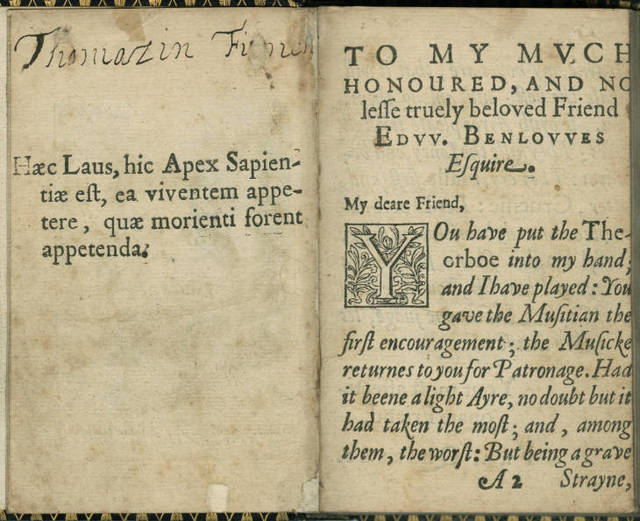 Thomasin
Hæc Laus, hic Apex Sapien-
tiæ est, ea viventem appe-
tere, quæ morienti forent
appetenda.
TO MY MVCH
HONOURED, AND NO
lesse truely beloved Friend
EDVV. BENLOVVES
Esquire.
My deare Friend,
YOu have put the The-
orboe into my hand;
and I have played: You
gave the Musitian the
first encouragement; the Musicke
returnes to you for Patronage. Had
it beene a light Ayre, no doubt but it
had taken the most; and, among
them, the worst: But being a grave
A 2 Strayne,